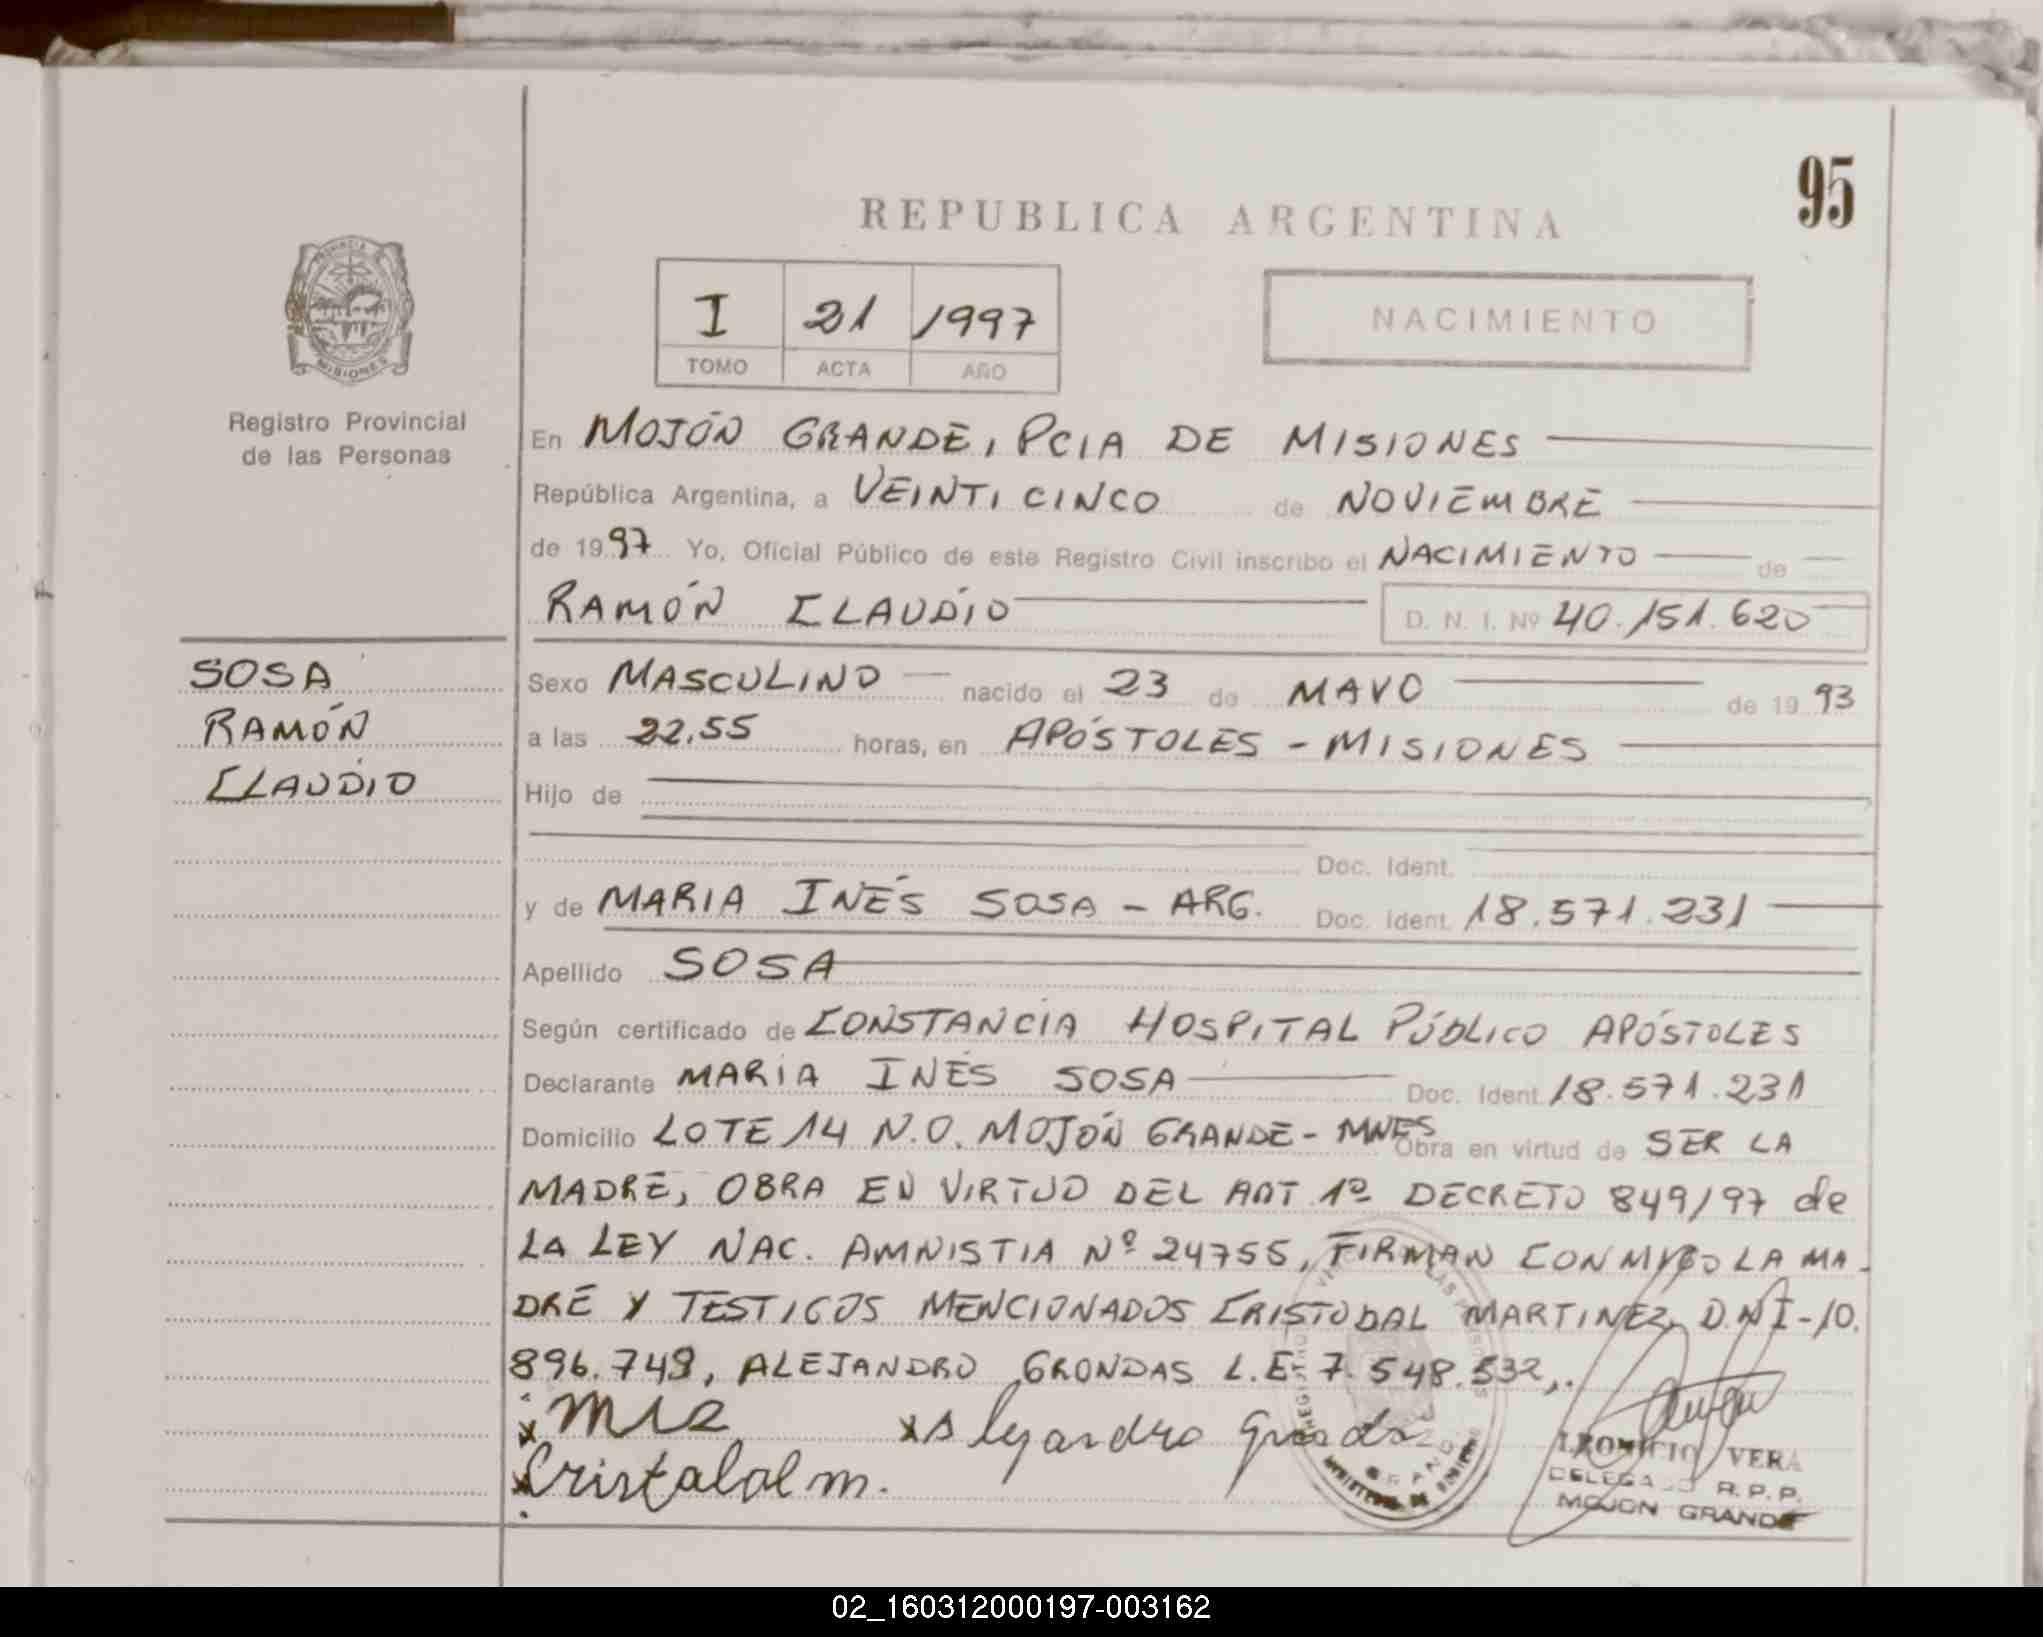 95
REPUBLICA ARGENTINA
I 21 1997
TOMO ACTA AÑO
NACIMIENTO
PROVINCIA DE
MISIONES
Registro Provincial
de las Personas
En MOJÓN GRANDE, PCIA DE MISIONES
República Argentina, a VEINTI CINCO de NOVIEMBRE
de 1997 Yo, Oficial Público de este Registro Civil inscribo el NACIMIENTO de
RAMÓN CLAUDIO D. N. I. Nº 40.151.620
SOSA
RAMÓN
CLAUDIO
Sexo MASCULINO nacido el 23 de MAYO de 1993
a las 22.55 horas, en APÓSTOLES - MISIONES
Hijo de
Doc. Ident.
y de MARIA INÉS SOSA - ARG. Doc. Ident. 18.571.231
Apellido SOSA
Según certificado de CONSTANCIA HOSPITAL PÚBLICO APÓSTOLES
Declarante MARIA INÉS SOSA Doc. Ident. 18.571.231
Domicilio LOTE 14 N.O. MOJÓN GRANDE - MNES Obra en virtud de SER LA
MADRE, OBRA EN VIRTUD DEL ART 1º DECRETO 849/97 de
LA LEY NAC. AMNISTIA Nº 24755, FIRMAN CONMIGO LA MA-
DRE Y TESTIGOS MENCIONADOS CRISTOBAL MARTINEZ D.N.I-10.
896.749, ALEJANDRO GRONDAS L.E 7.548.532,.
x MIS x Alejandro
x Cristalol m.
LEONICIO VERA
DELEGADO R.P.P.
MOJON GRANDE
02_160312000197-003162